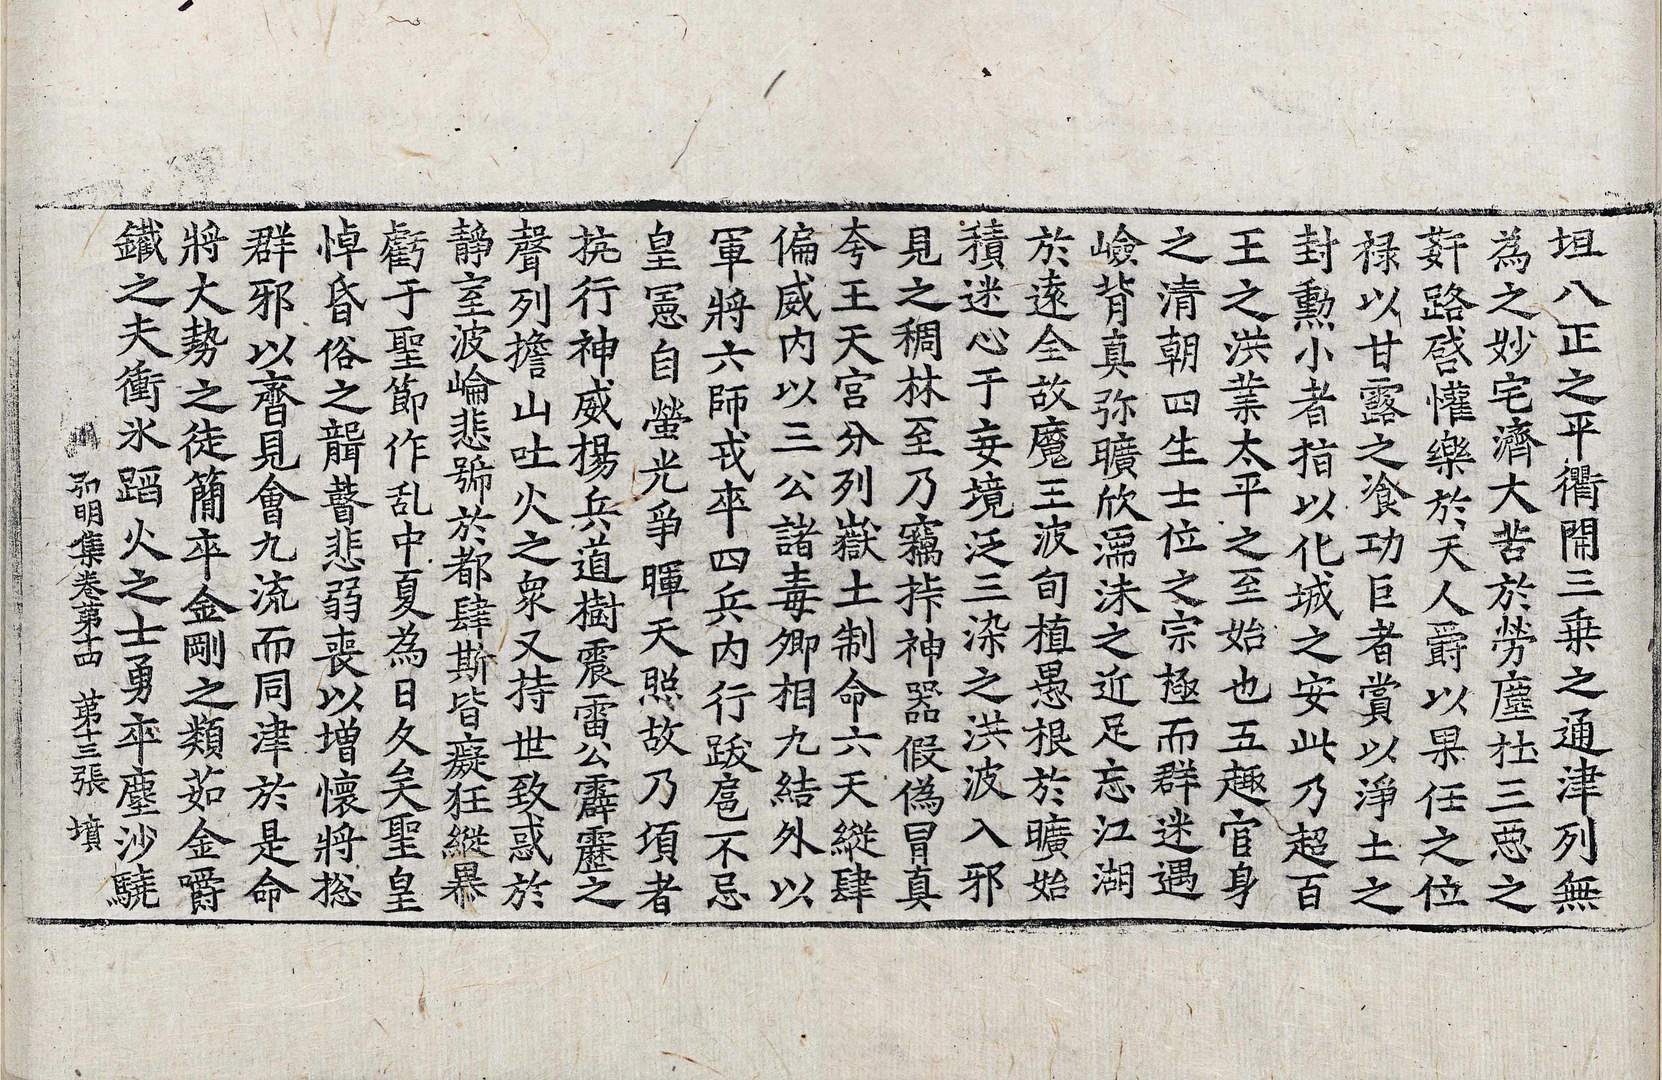 坦八正之平衢開三乗之通津列無
為之妙宅濟大苦於勞塵杜三惡之
姧路啓懽樂於天人爵以果任之位
禄以甘露之飡功巨者賞以淨土之
封勳小者指以化城之安此乃超百
王之洪業太平之至始也五趣官身
之清朝四生士位之宗極而群迷遇
嶮背真弥曠欣濡沫之近足忘江湖
於遠全故魔王波旬植愚根於曠始
積迷心于妄境泛三染之洪波入邪
見之稠林至乃竊㨃神器假偽冒真
夸王天宫分列嶽土制命六天縱肆
偏威内以三公諸毒卿相九結外以
軍將六師戎卒四兵内行跋扈不忌
皇憲自螢光爭暉天照故乃項者
抗行神威楊兵道樹震雷公霹靂之
聲列擔山吐火之衆又持世致惑於
靜室波崘悲號於都肆斯皆癡狂縱暴
虧于聖節作乱中夏為日久矣聖皇
悼昏俗之聾瞽悲弱喪以增懷將揔
群邪以齊見會九流而同津於是命
將大勢之徒簡卒金剛之類茹金嚼
鐵之夫衝氷蹈火之士勇卒塵沙驍
弘明集卷第十四 第十三張 墳